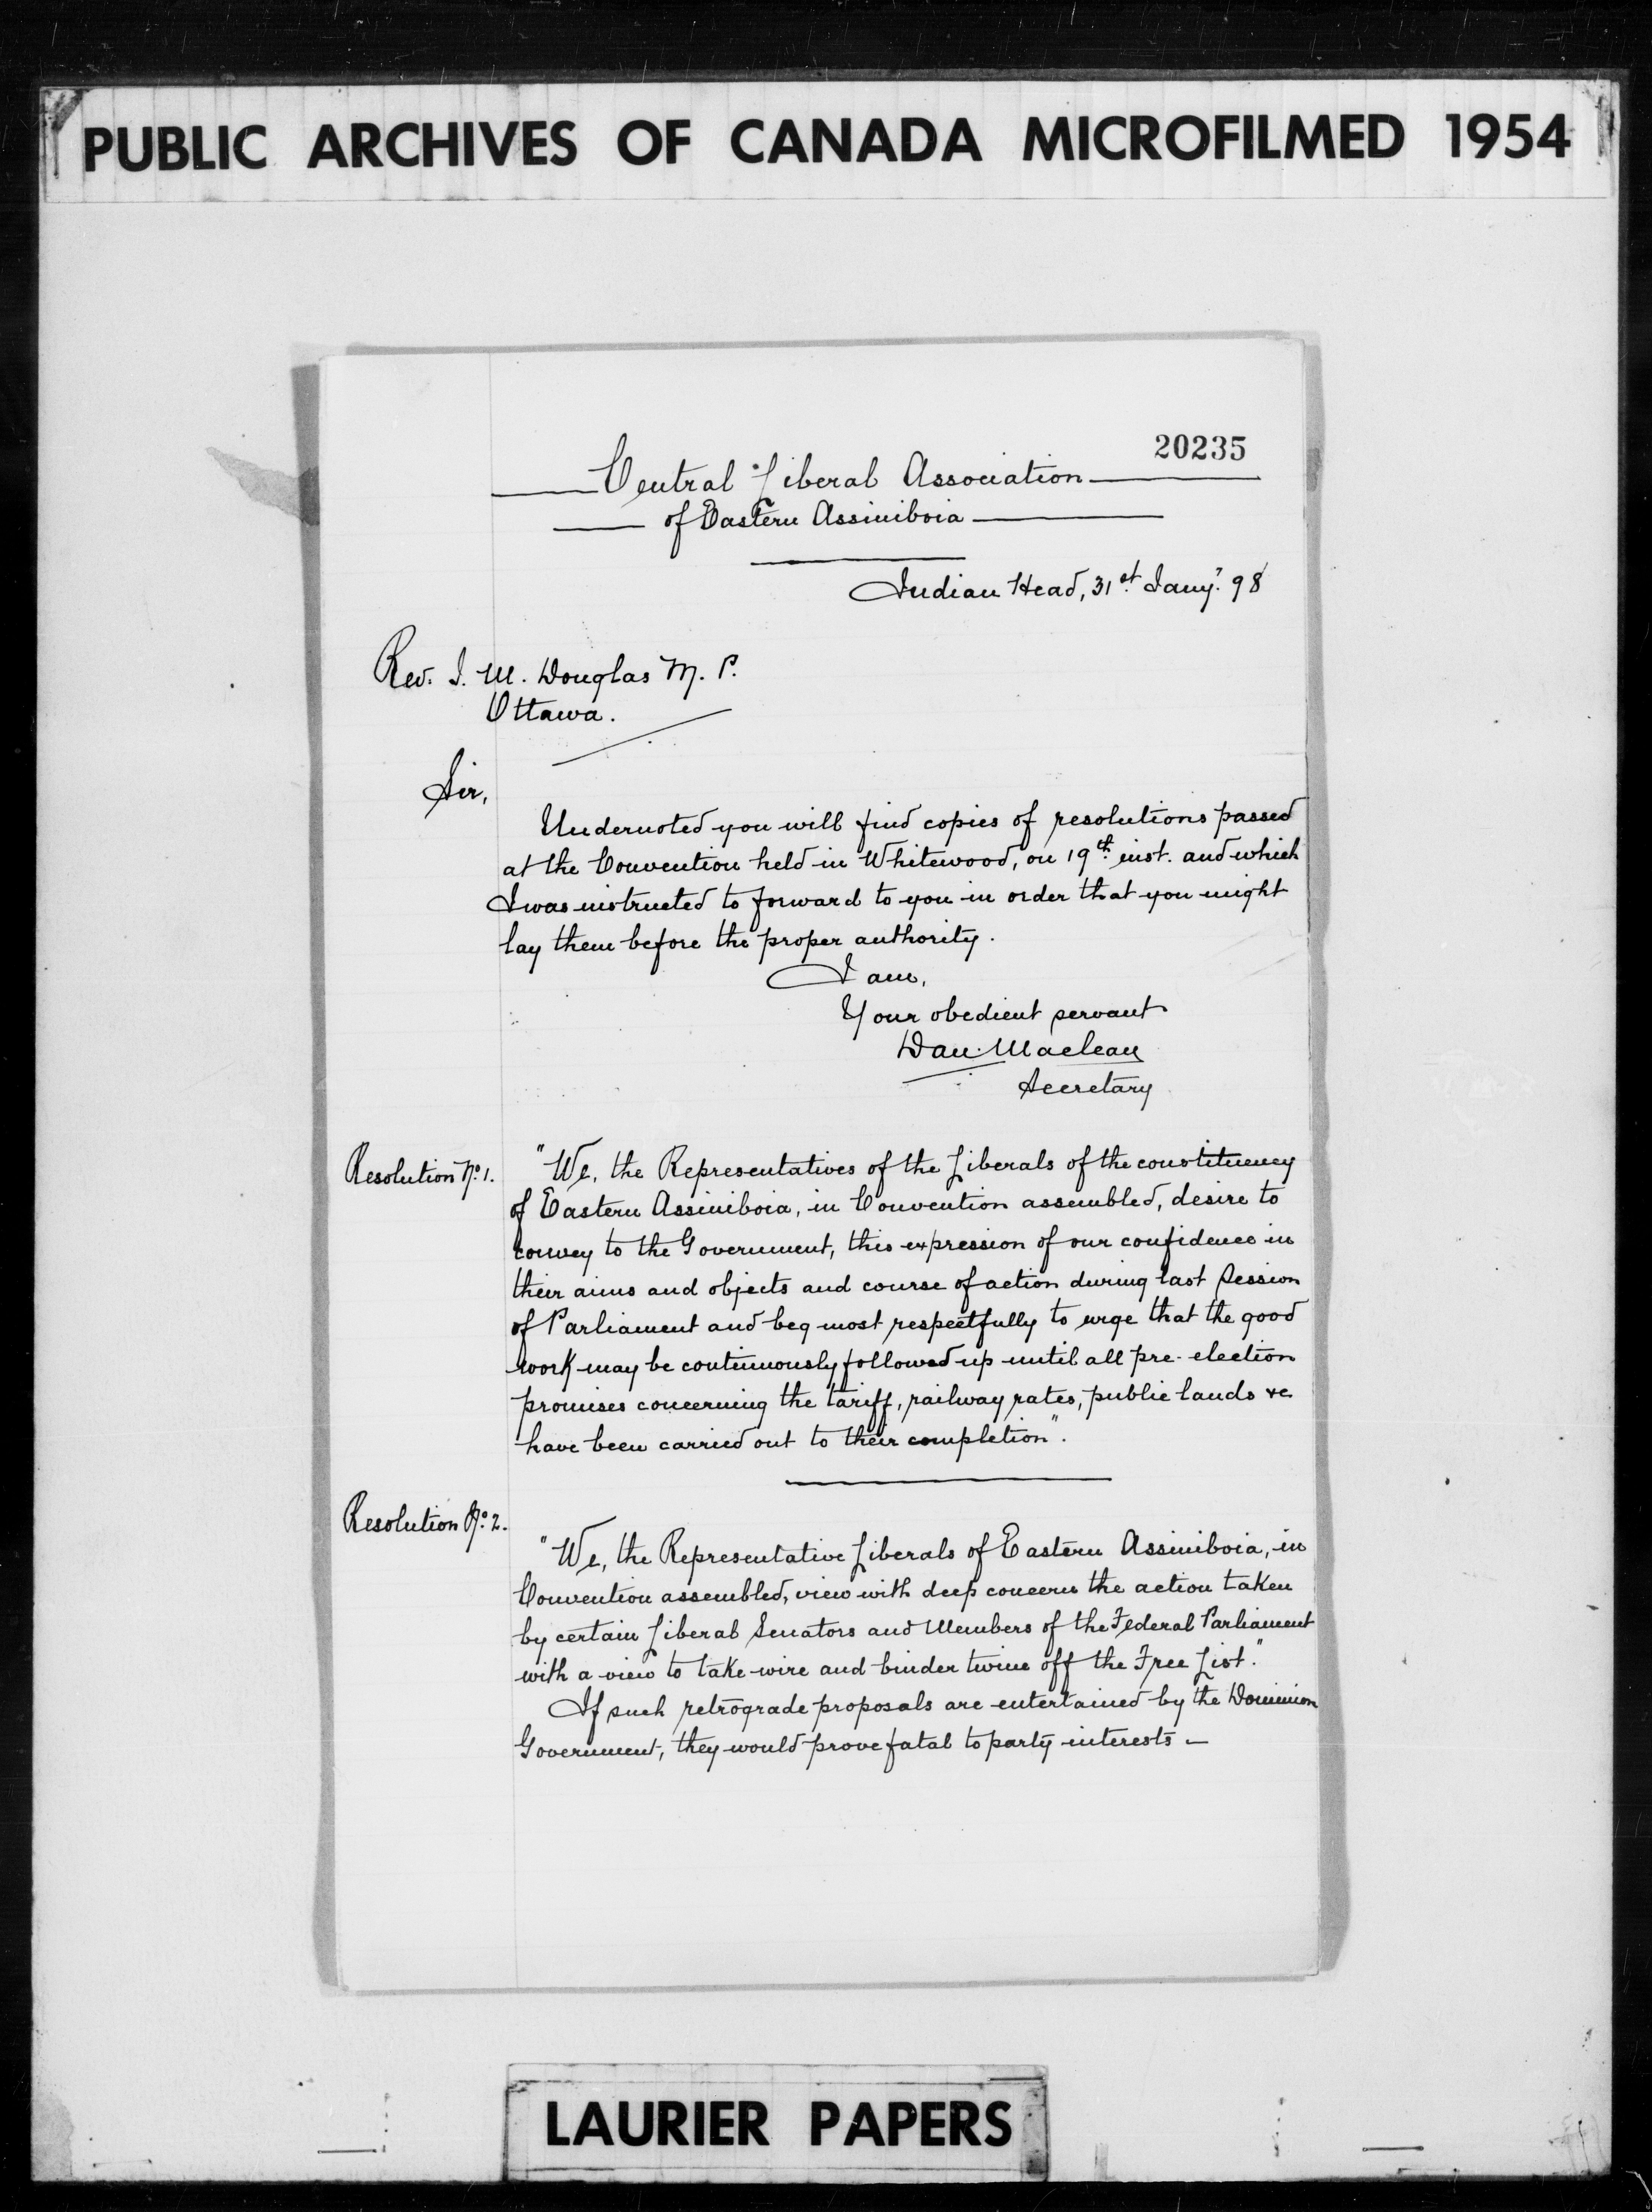 PUBLIC ARCHIVES OF CANADA MICROFILMED 1954
20235
Central Liberal Association
of Eastern Assiniboia
Indian Head, 31st Jany. 98
Rev. J. M. Douglas M. P.
Ottawa.
Sir,
Undernoted you will find copies of resolutions passed
at the Convention held in Whitewood, on 19th inst. and which
I was instructed to forward to you in order that you might
lay them before the proper authority.
I am,
Your obedient servant
Dan. Maclean
Secretary
Resolution No. 1.
"We, the Representatives of the Liberals of the constituency
of Eastern Assiniboia, in Convention assembled, desire to
convey to the Government, this expression of our confidence in
their aims and objects and course of action during last Session
of Parliament and beg most respectfully to urge that the good
work may be continuously followed up until all pre-election
promises concerning the tariff, railway rates, public lands &c
have been carried out to their completion".
Resolution No. 2.
"We, the Representative Liberals of Eastern Assiniboia, in
Convention assembled, view with deep concern the action taken
by certain Liberal Senators and Members of the Federal Parliament
with a view to take wire and binder twine off the Free List."
If such retrograde proposals are entertained by the Dominion
Government, they would prove fatal to party interests —
LAURIER PAPERS